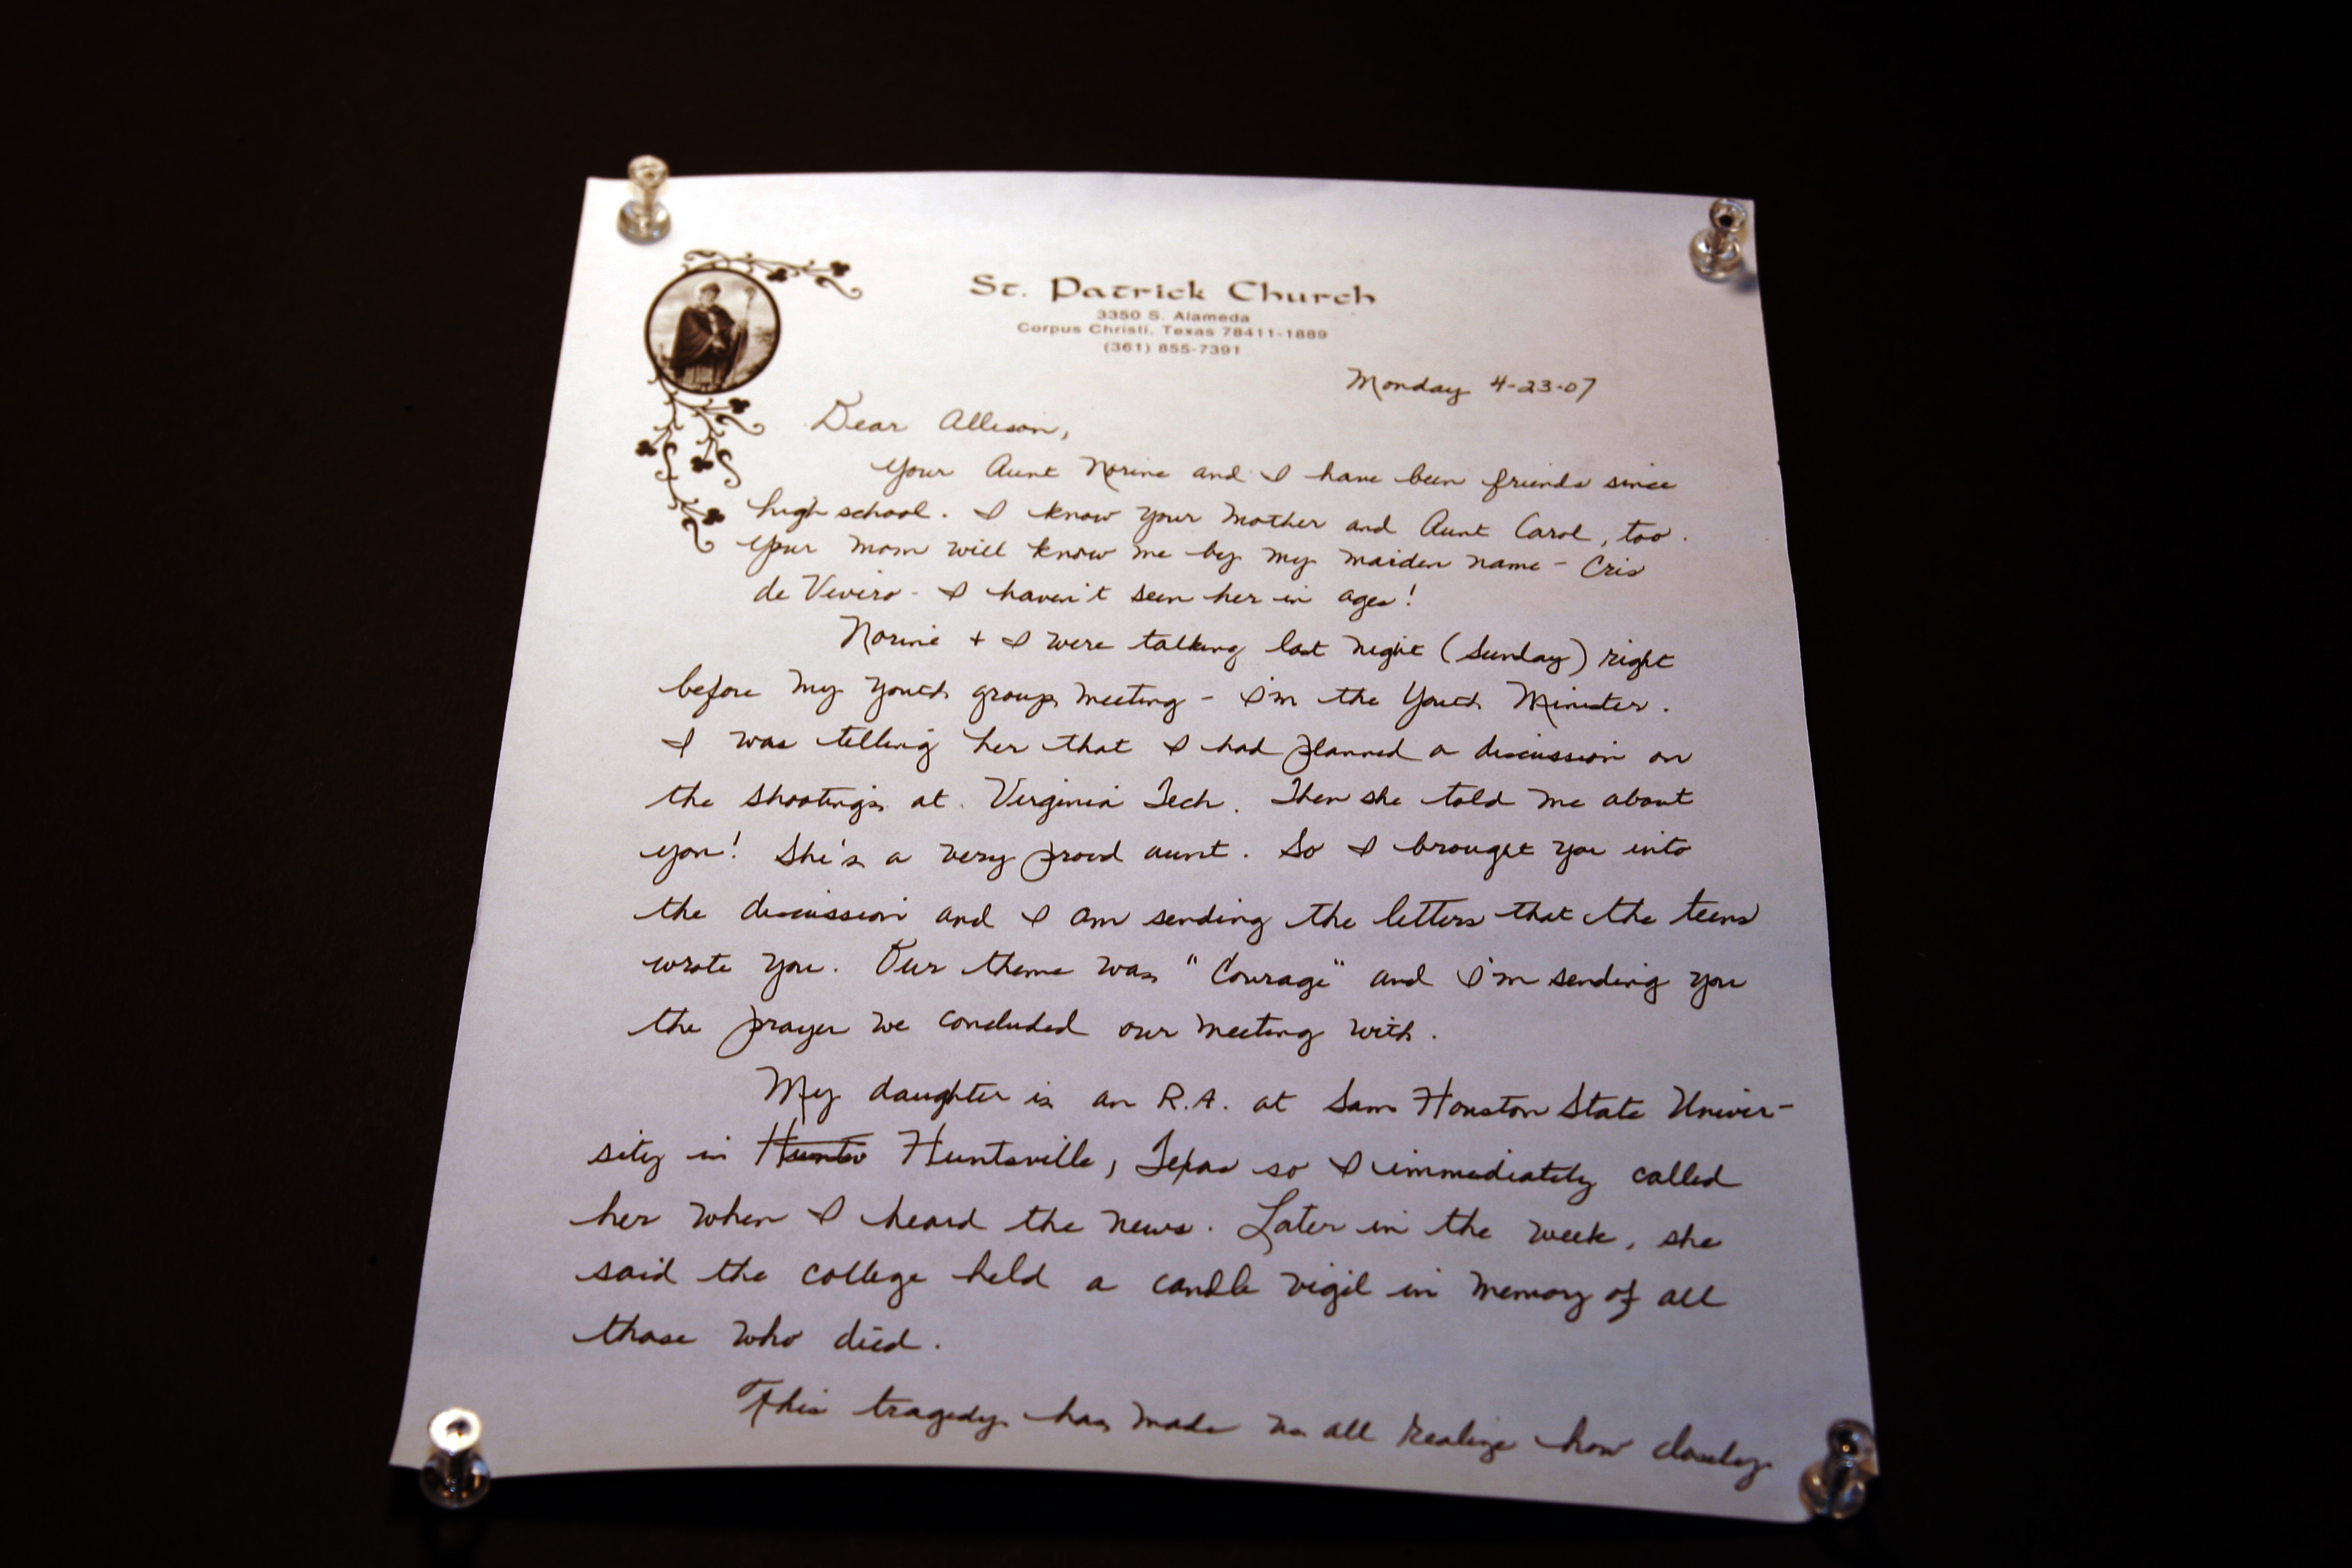 St. Patrick Church
3350 S. Alameda
Corpus Christi, Texas 78411-1889
(361) 855-7391
Monday 4-23-07
Dear Allison,
Your Aunt Norine and I have been friends since
high school. I know your mother and Aunt Carol, too.
Your mom will know me by my maiden name - Cris
de Vivero - I haven't seen her in ages!
Norine + I were talking last night (Sunday) right
before my youth group meeting - I'm the Youth Minister.
I was telling her that I had planned a discussion on
the shootings at Virginia Tech. Then she told me about
you! She's a very proud aunt. So I brought you into
the discussion and I am sending the letters that the teens
wrote you. Our theme was "Courage" and I'm sending you
the prayer we concluded our meeting with.
My daughter is an R.A. at Sam Houston State Univer-
sity in Hunts Huntsville, Texas so I immediately called
her when I heard the news. Later in the week, she
said the college held a candle vigil in memory of all
those who died.
This tragedy has made us all realize how closely